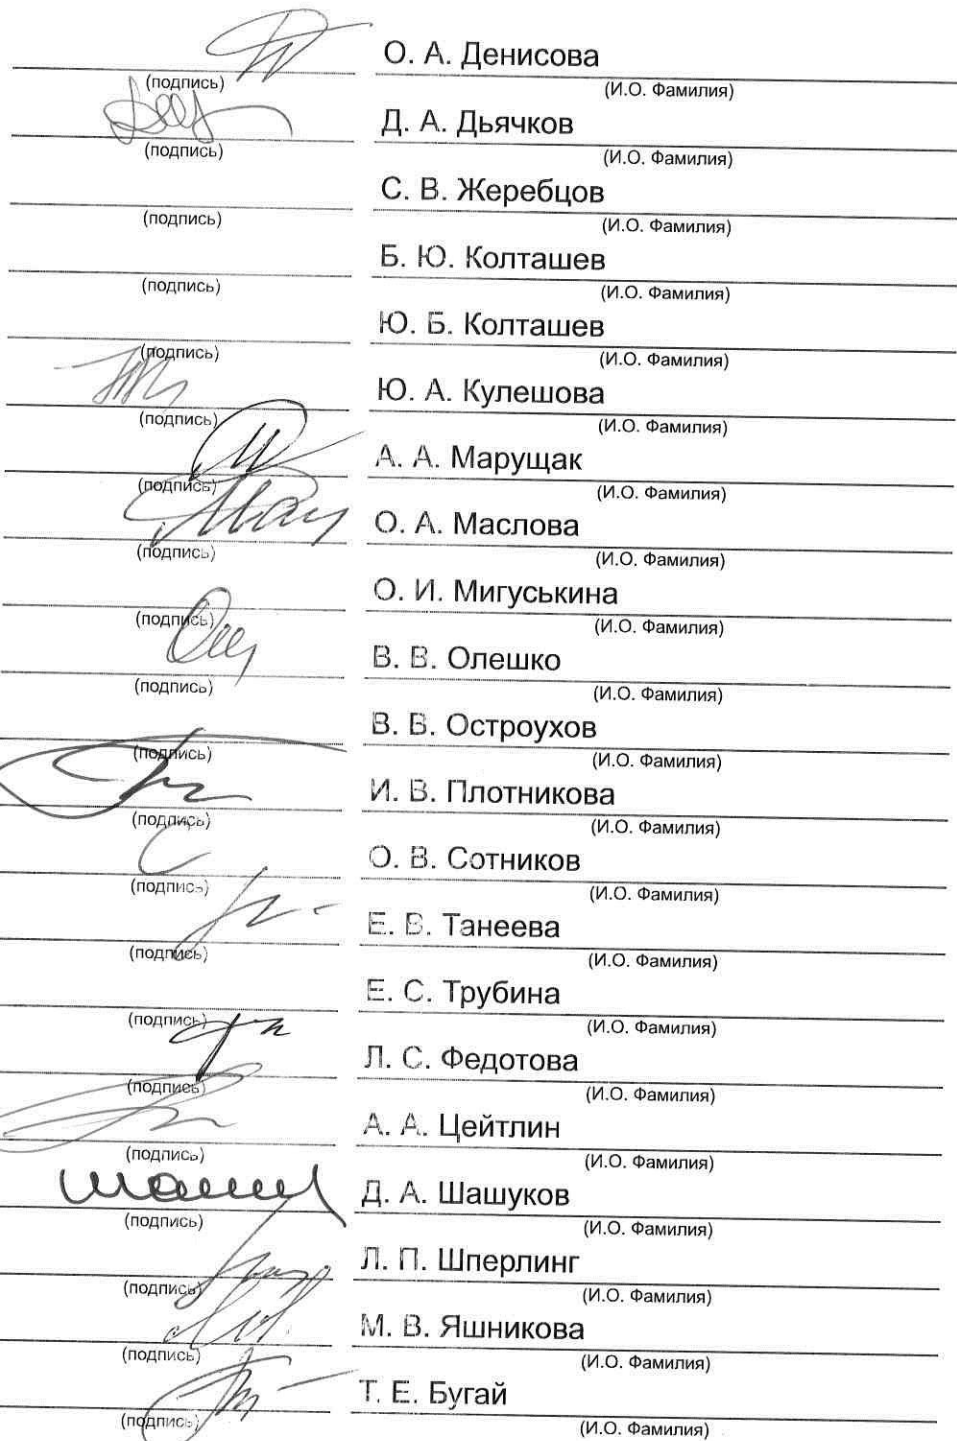 О. А. Денисова
(подпись) (И.О. Фамилия)
Д. А. Дьячков
(подпись) (И.О. Фамилия)
С. В. Жеребцов
(подпись) (И.О. Фамилия)
Б. Ю. Колташев
(подпись) (И.О. Фамилия)
Ю. Б. Колташев
(подпись) (И.О. Фамилия)
Ю. А. Кулешова
(подпись) (И.О. Фамилия)
А. А. Марущак
(подпись) (И.О. Фамилия)
О. А. Маслова
(подпись) (И.О. Фамилия)
О. И. Мигуськина
(подпись) (И.О. Фамилия)
В. В. Олешко
(подпись) (И.О. Фамилия)
В. В. Остроухов
(подпись) (И.О. Фамилия)
И. В. Плотникова
(подпись) (И.О. Фамилия)
О. В. Сотников
(подпись) (И.О. Фамилия)
Е. В. Танеева
(подпись) (И.О. Фамилия)
Е. С. Трубина
(подпись) (И.О. Фамилия)
Л. С. Федотова
(подпись) (И.О. Фамилия)
А. А. Цейтлин
(подпись) (И.О. Фамилия)
Д. А. Шашуков
(подпись) (И.О. Фамилия)
Л. П. Шперлинг
(подпись) (И.О. Фамилия)
М. В. Яшникова
(подпись) (И.О. Фамилия)
Т. Е. Бугай
(подпись) (И.О. Фамилия)